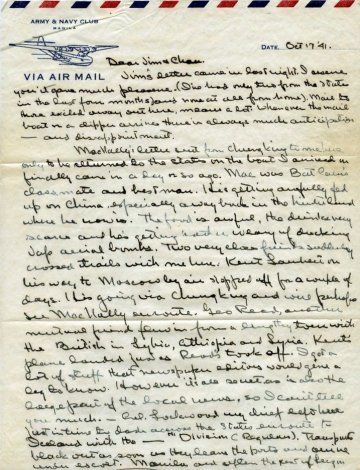 ARMY & NAVY CLUB
MANILA
VIA AIR MAIL
DATE. Oct 17 '41.
Dear Jim & Chan
Jim's letter came in last night. I assure
you it gave much pleasure. (I've had only two from the States
in the last four months) and none at all from home). Mail to
those exiled away out here, means a lot. Whenever the mail
boat or a clipper arrives there is always much anticipation
and disappointment.
MacNally's letter sent from Chungking to me
only to be returned to the states on the boat I arrived in
finally came in a day or so ago. Mac was
class mate and best man. He is getting awfully fed
up on China especially away back in the hinterland
where he now is. The food is awful, the drinks very
scarce and he's getting weary of ducking
Jap aerial bombs. Two very close friends suddenly
crossed trails with me here. Kent Lambert on
his way to Moscow by air stopped off for a couple of
days. He is going via Chungking and will perhaps
see MacNally enroute. Geo Read, another
mutual friend flew in from a lengthy tour with
the British in Lybia, Ethiopia and Syria. Kent's
plane landed just as Read's took off. I got a
lot of stuff that newspaper editors would give a
leg to know. However it's all secret as is also the
large part of the local news, so I can't tell
you much. Col. Lockwood my chief left here
just in time to dash across the States enroute to
Iceland with the — th Division (Regulars). Transports
black out as soon as they leave the ports and come
under escort. Manila